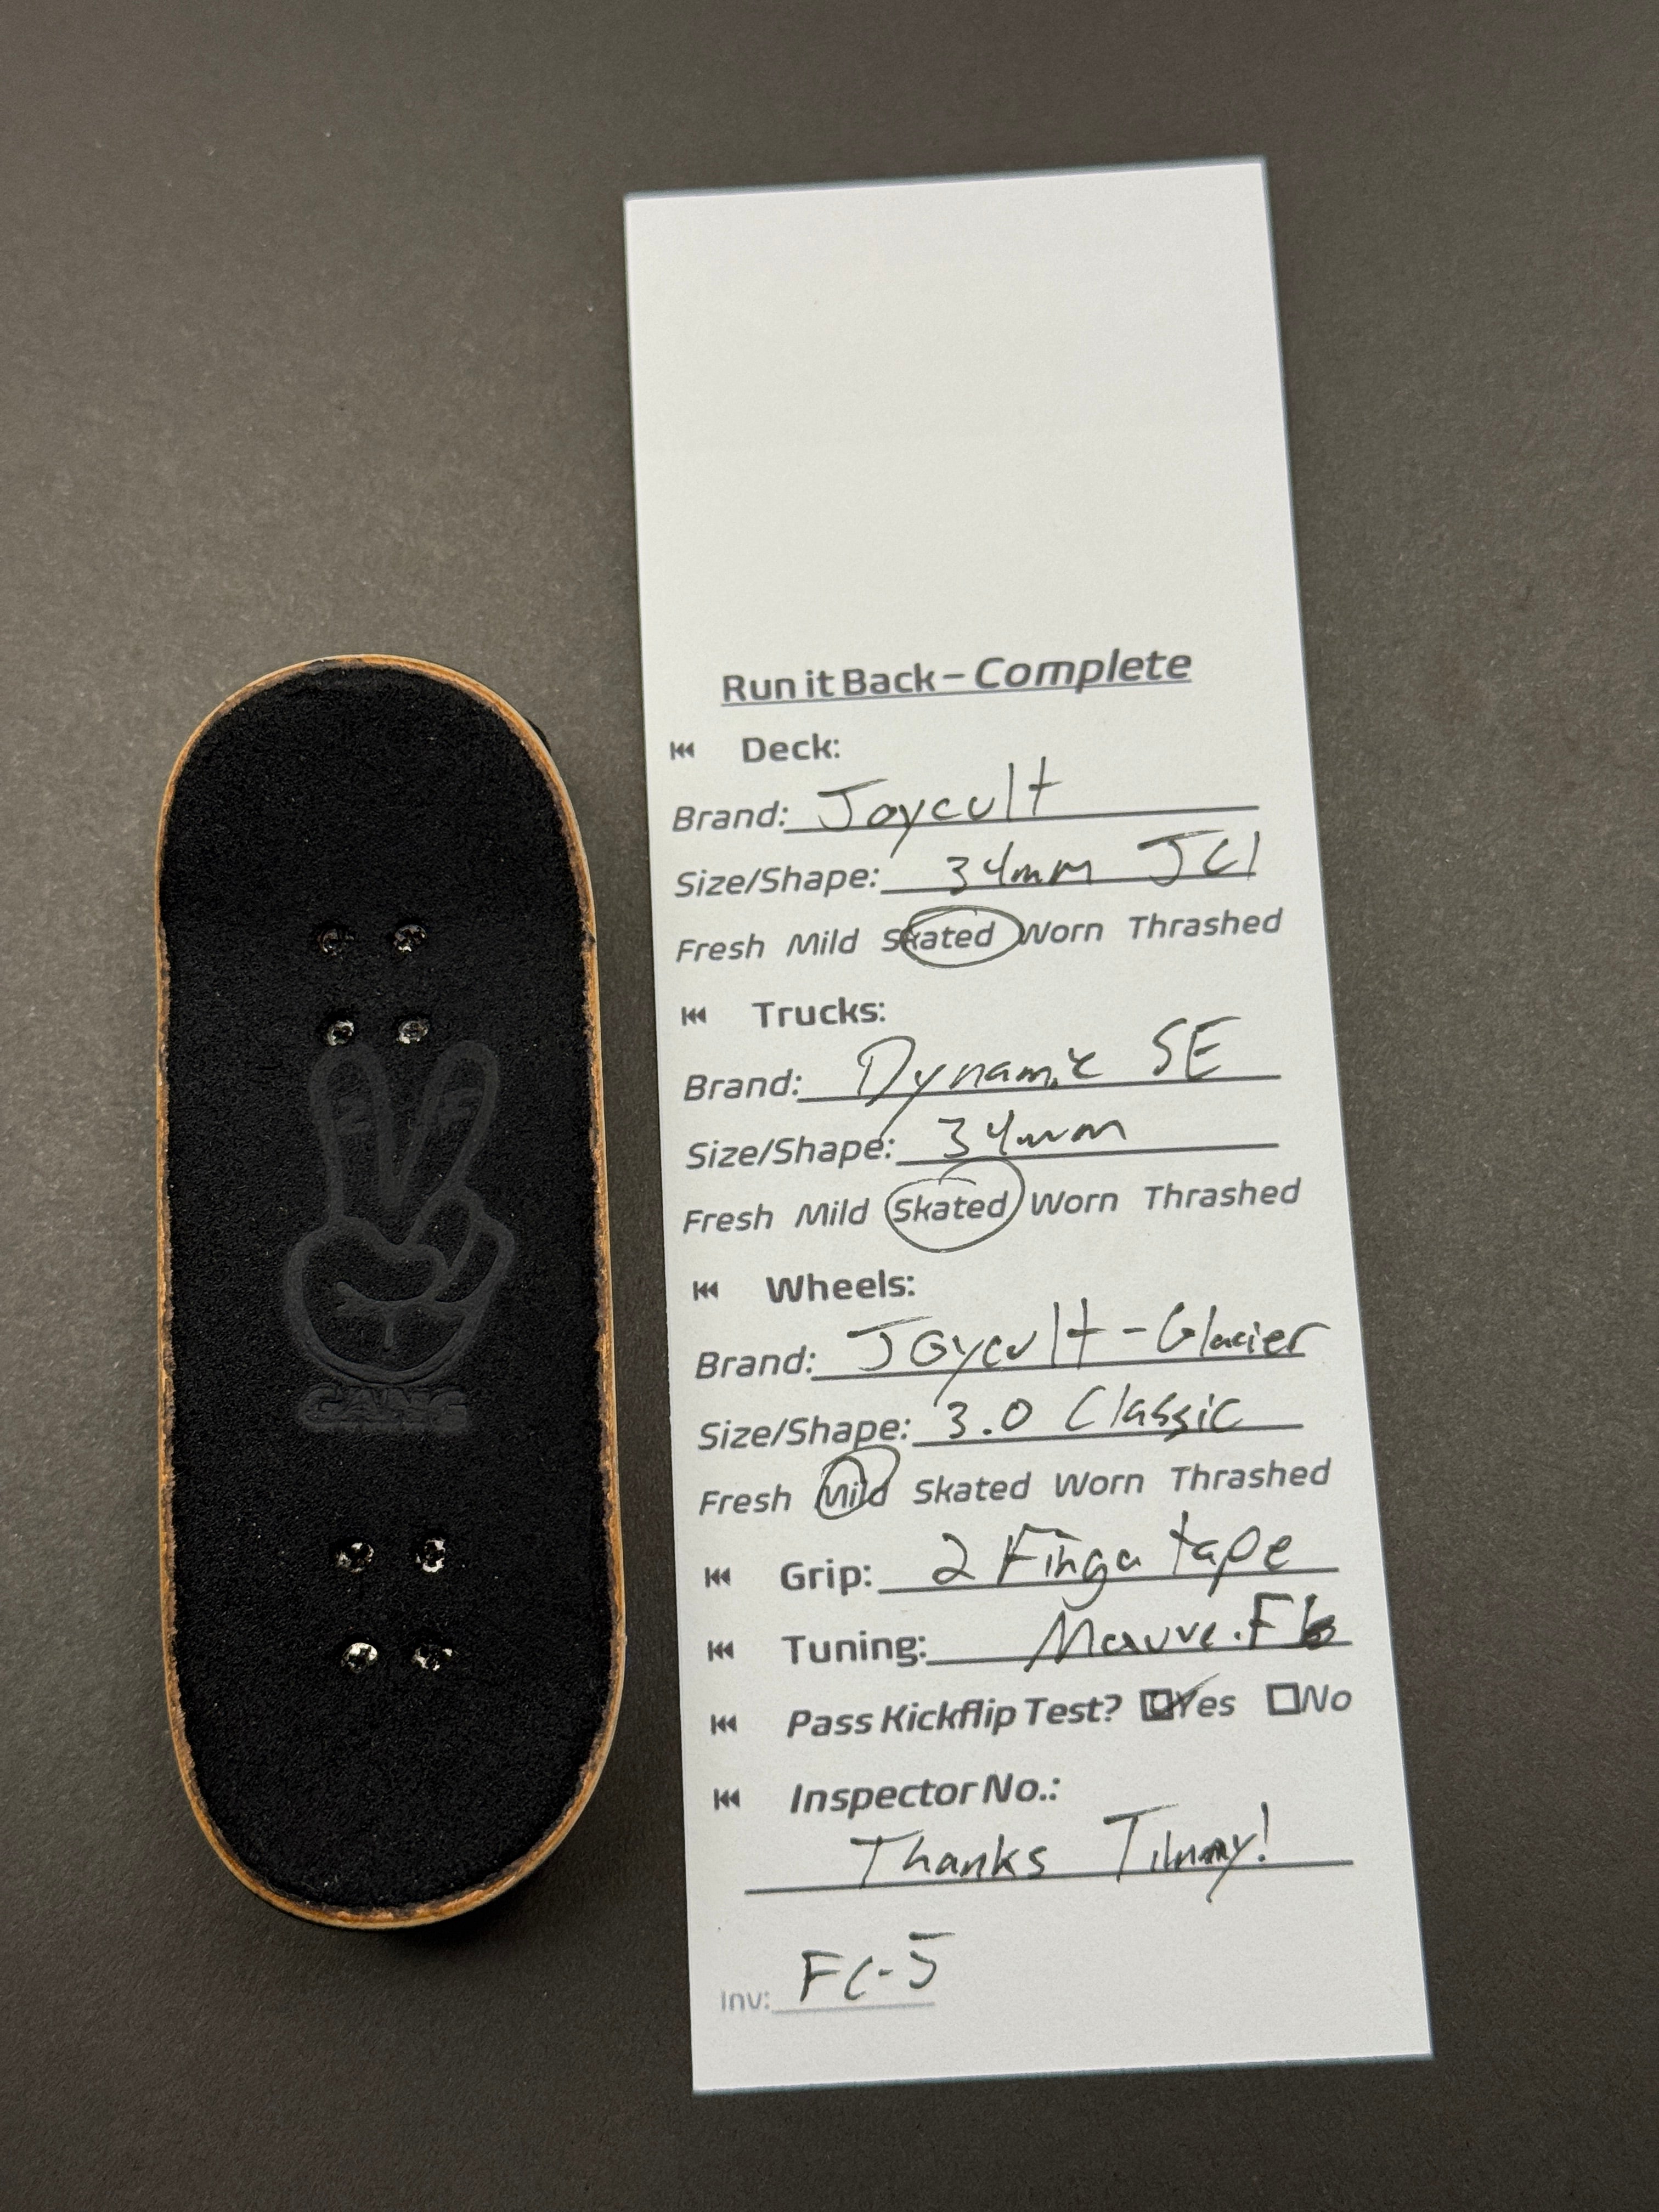 2 F
GANG
Run it Back – Complete
Deck:
Brand: Joycult
Size/Shape: 34mm JC1
Fresh Mild Skated Worn Thrashed
Trucks:
Brand: Dynamic SE
Size/Shape: 34mm
Fresh Mild Skated Worn Thrashed
Wheels:
Brand: Joycult - Glacier
Size/Shape: 3.0 Classic
Fresh Mild Skated Worn Thrashed
Grip: 2 Finga tape
Tuning: Mauve.Fb
Pass Kickflip Test? Yes No
Inspector No.:
Thanks
Inv: FC-5